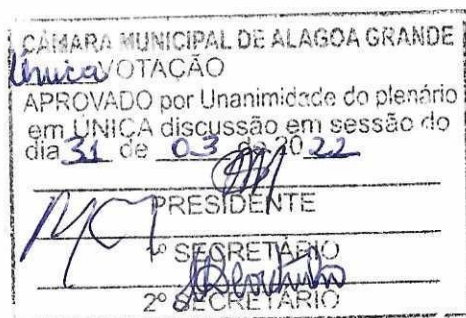 CÂMARA MUNICIPAL DE ALAGOA GRANDE
Única VOTAÇÃO
APROVADO por Unanimidade do plenário
em ÚNICA discussão em sessão do
dia 31 de 03 de 2022
PRESIDENTE
1º SECRETÁRIO
2º SECRETÁRIO